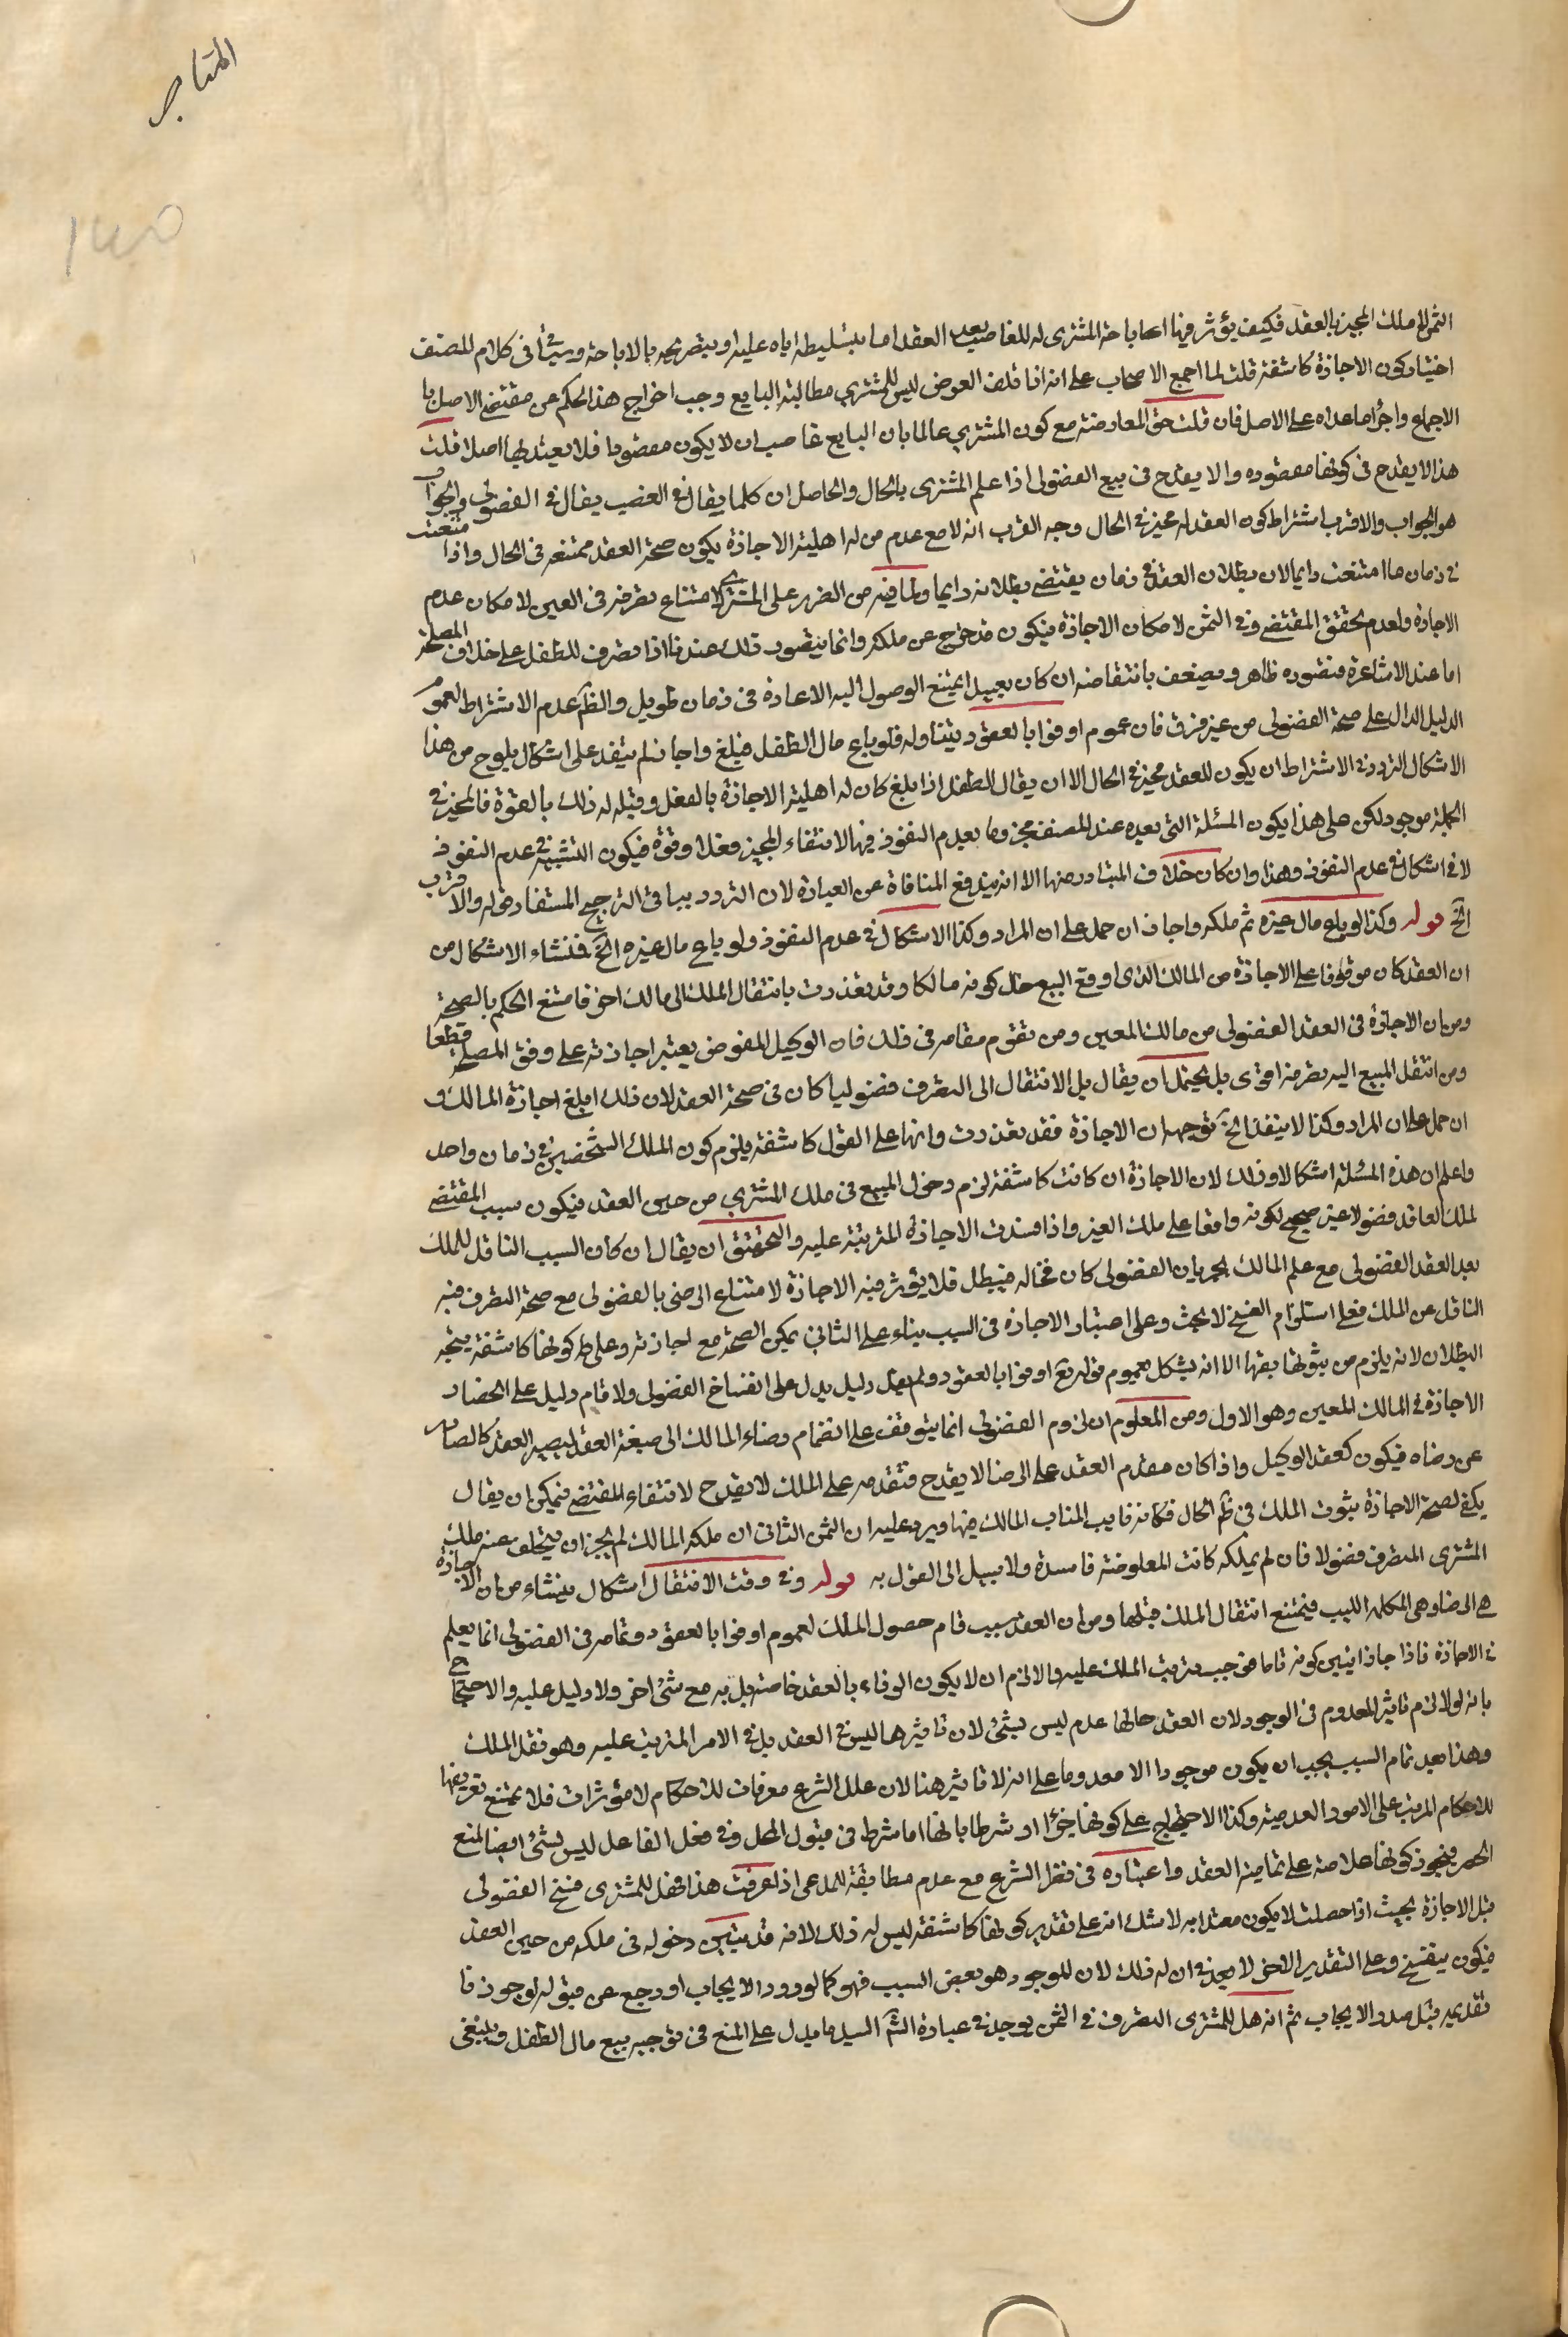 المتاجر
۱۴۵
الثمن الى ملك المجيز بالعقد فكيف يؤثر فيها اعا باحة المشترى له للغاصب بعد العقد اما بتسليطه اياه عليه او بتصريحه بالاباحة وسيأتى فى كلام المصنف
اختيار كون الاجازة كاشفة قلت لما اجمع الاصحاب على انه اذا تلف العوض ليس للمشتري مطالبة البايع وجب اخراج هذا الحكم عن مقتضى الاصل با
الاجماع واجراء ما عداه على الاصل فان قلت حق المعاوضة مع كون المشتري عالما بان البايع غاصب ان لا يكون مقصودا فلا يعتد بها اصلا قلت
هذا لا يقدح فى كونها مقصوده والا يقدح فى بيع الفضولى اذا علم المشترى بالحال والحاصل ان كلما يقال فى الغصب يقال فى الفضولى والجواب
هو الجواب والاقرب اشتراط كون العقد له مجيز فى الحال وجه القرب انه لا مع عدم من له اهلية الاجازة يكون صحة العقد ممتنعه فى الحال واذا امتنعت
فى زمان ما امتنعت دايما لان بطلان العقد فى زمان يقتضى بطلانه دايما ولما فيه من الضرر على المشتري لامتناع تصرفه فى العين لامكان عدم
الاجازة ولعدم تحقق المقتضى وفى الثمن لامكان الاجازة فيكون قد خرج عن ملكه وانما يتصور ذلك عندنا اذا تصرف للطفل على خلاف المصلحة
اما عند الاشاعرة فتصوره ظاهر ويضعف بانتقاضه ان كان بعيدا يمتنع الوصول اليه الاعادة فى زمان طويل والظ عدم الاشتراط لعموم
الدليل الدال على صحة الفضولى من غير فرق فان عموم اوفوا بالعقود يتناوله فلو باع مال الطفل فبلغ واجاز لم ينفذ على اشكال يلوح من هذا
الاشكال التردد فى الاشتراط ان يكون للعقد مجيز فى الحال الا ان يقال الطفل اذا بلغ كان له اهلية الاجازة بالفعل وقبله له ذلك بالقوة فالمجيز فى
الجملة موجود لكن على هذا يكون المسئلة التى بعده عند المصنف مجزوما بعدم النفوذ فيها لانتفاء المجيز فعلا وقوة فيكون التشبيه فى عدم النفوذ
لا فى اشكال فى عدم النفوذ وهذا وان كان خلاف المتبادر منها الا انه يندفع المنافاة عن العبارة لان التردد ينافى الترجيح المستفاد من قوله والاقرب
الخ قوله وكذا لو باع مال غيره ثم ملكه واجاز ان حمل على ان المراد وكذا الاشكال فى عدم النفوذ ولو باع مال غيره الخ فمنشاء الاشكال من
ان العقد كان موقوفا على الاجازة من المالك الذى اوقع البيع حال كونه مالكا وقد تعذرت بانتقال الملك الى مالك اخر فامتنع الحكم بالصحة
ومن ان الاجازة فى العقد الفضولى من مالك المعين ومن يقوم مقامه فى ذلك فان الوكيل المفوض يعتبر اجازته على وفق المصلحة قطعا
ومن انتقل المبيع اليه بعرضه اقوى بل يحتمل ان يقال بل الانتقال الى التصرف فضوليا كان فى صحة العقد لان ذلك ابلغ اجازة المالك و
ان حمل على ان المراد وكذا لا ينفذ الخ توجه ان الاجازة فقد تعذرت وانها على القول كاشفة يلزم كون الملك الشخصين فى زمان واحد
واعلم ان هذه المسئلة اشكالا وذلك لان الاجازة ان كانت كاشفة لزم دخول المبيع فى ملك المشتري من حين العقد فيكون سبب المقتضى
لملك العاقد فضولا غير صحيح لكونه واقعا على ملك الغير واذا فسدت الاجازة المترتبة عليه والتحقيق ان يقال ان كان السبب الناقل للملك
بعد العقد الفضولى مع علم المالك بجريان الفضولى كان فخاله فيبطل فلا يؤثر فيه الاجازة لامتناع الرضى بالفضولى مع صحة التصرف فيه
الناقل عن الملك فعلى استلزام الفسخ لا بحث وعلى اعتبار الاجازة فى السبب بناء على الثانى يمكن الصحة مع اجازته وعلى كونها كاشفة يتجه
البطلان لانه يلزم من ثبوتها نفيها الا انه يشكل بعموم قوله تع اوفوا بالعقود ولم دليل يدل على انفساخ الفضولى ولا قام دليل على انحصار
الاجازة فى المالك المعين وهو الاول ومن المعلوم ان لزوم الفضولى انما يتوقف على انضمام رضاء المالك الى صيغة العقد ليصير العقد كالصادر
عن رضاه فيكون كعقد الوكيل واذا كان مقدم العقد على الرضا لا يقدح فتقدمه على الملك لا يقدح لانتفاء المقتضى فيمكن ان يقال
يكفى لصحة الاجازة ثبوت الملك فى ظ الحال فكانه نايب المناب المالك فيها ويرد عليه ان الثمن الثانى ان ملكه المالك لم يجز ان يتخلف عنه ملك
المشترى المتصرف فضولا فان لم يملكه كانت المعاوضة فاسدة ولا سبيل الى القول به قوله وفى وقت الانتقال اشكال ينشاء من ان الاجازة
هى الرضا وهى المكمله السبب فيمتنع انتقال الملك قبلها ومن ان العقد سبب تام حصول الملك لعموم اوفوا بالعقود وتمامه فى الفضولى انما يعلم
فى الاجازة فاذا جاز اتبين كونه تاما فوجب ترتب الملك عليه والا لزم ان لا يكون الوفاء بالعقد خاصة بل به مع شئ اخر ولا دليل عليه والاحتجاج
بانه لولا لزم تاثير المعدوم فى الوجود لان العقد حالها عدم ليس بشئ لان تاثيرها ليس فى العقد بل فى الامر المترتب عليه وهو نقل الملك
وهذا بعد تمام السبب يجب ان يكون موجودا الا معدوما على انه لا تاثير هنا لان علل الشرع معرفات للاحكام لا مؤثرات فلا يمتنع تعريفها
للاحكام المرتب على الامور العدمية وكذا الاحتجاج على كونها جزءا او شرطا بانها اما شرط فى قبول المحل وفى فعل الفاعل ليس بشئ ايضا لمنع
الحصر فيجوز كونها علامة على تمامية العقد واعتباره فى نظر الشرع مع عدم مطابقة للمدعى اذا عرفت هذا فهل للمشترى فسخ الفضولى
قبل الاجازة بحيث اذا حصلت لا يكون معتدا به لا شك انه على تقدير كونها كاشفة ليس له ذلك لانه قد يتبين دخوله فى ملكه من حين العقد
فيكون ينفسخ وعلى التقدير الاخر لا بعد فى ان له ذلك لان الموجود هو بعض السبب فهو كما لو ورد الايجاب او رجع عن قبوله لو جوزنا
تقديمه قبل صدور الايجاب ثم انه هل للمشترى التصرف فى الثمن يوجد فى عبارة الشم السيد ما يدل على المنع فى توجيه بيع مال الطفل وينبغى